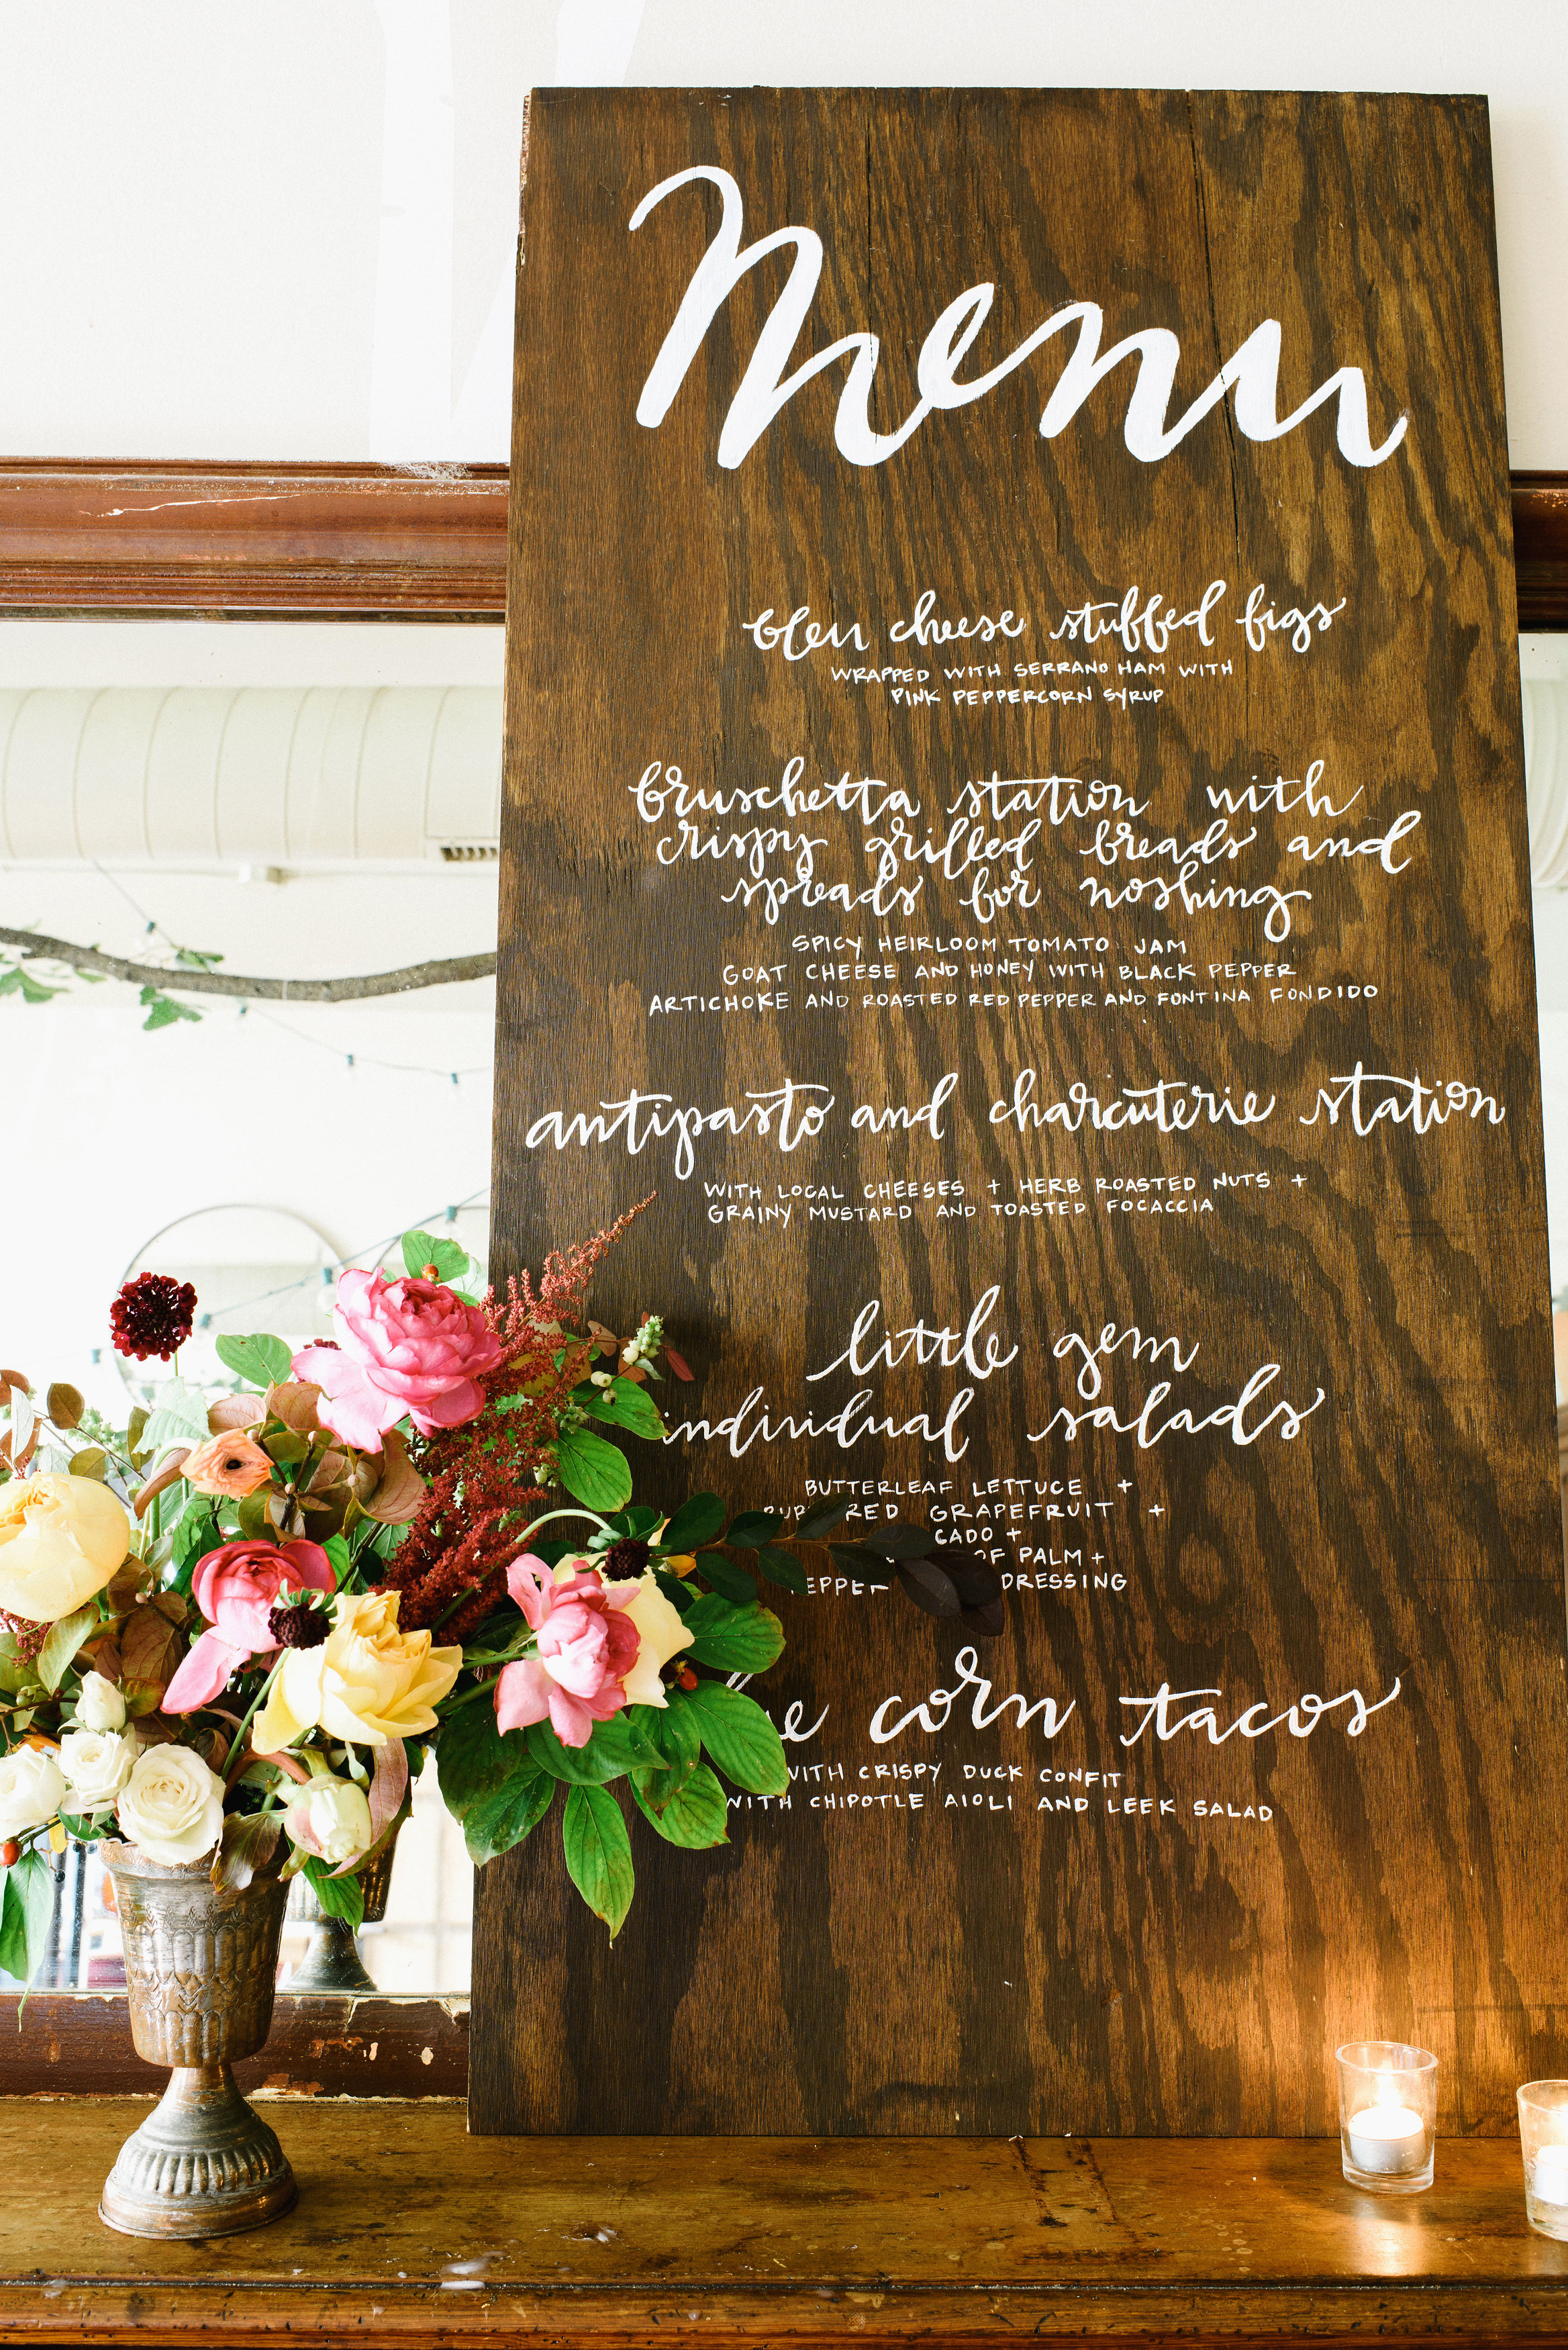 Menu
bleu cheese stuffed figs
WRAPPED WITH SERRANO HAM WITH
PINK PEPPERCORN SYRUP
bruschetta station with
crispy grilled breads and
spreads for noshing
SPICY HEIRLOOM TOMATO JAM
GOAT CHEESE AND HONEY WITH BLACK PEPPER
ARTICHOKE AND ROASTED RED PEPPER AND FONTINA FONDIDO
antipasto and charcuterie station
WITH LOCAL CHEESES + HERB ROASTED NUTS +
GRAINY MUSTARD AND TOASTED FOCACCIA
little gem
individual salads
BUTTERLEAF LETTUCE +
RED GRAPEFRUIT +
+
OF PALM +
DRESSING
corn tacos
WITH CRISPY DUCK CONFIT
WITH CHIPOTLE AIOLI AND LEEK SALAD